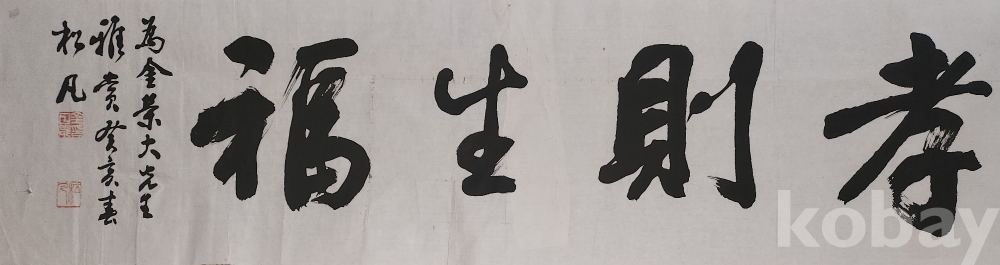 孝則生福
為金榮大先生
雅賞 癸亥春
松凡
kobay